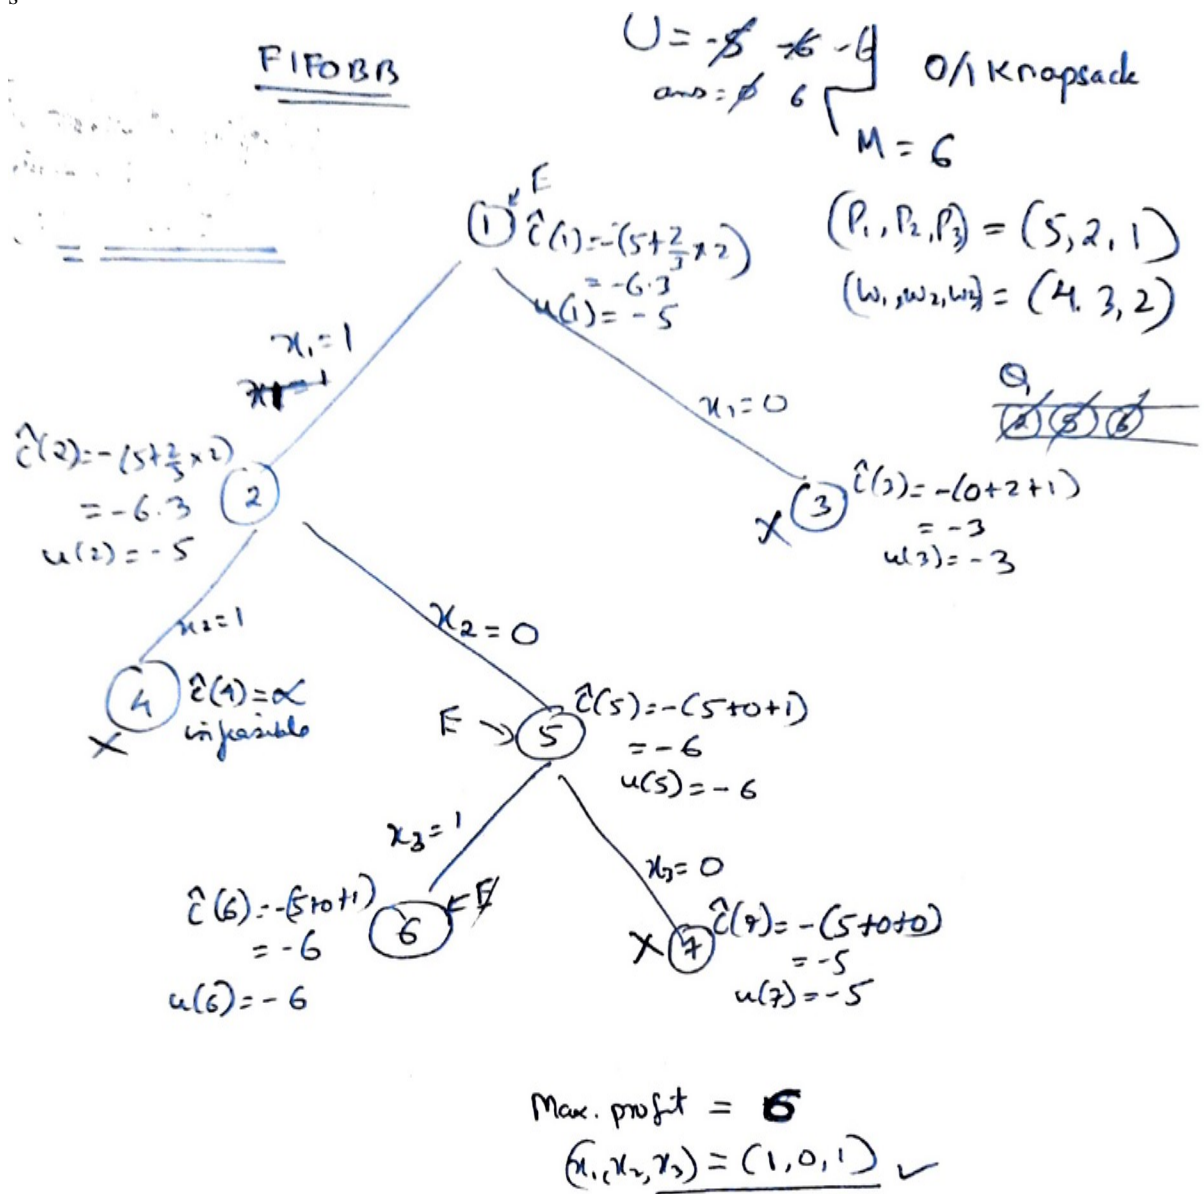 s
FIFOBB
U = -5 -6 -6
ans = 0 6
0/1 Knapsack
M = 6
(P₁, P₂, P₃) = (5, 2, 1)
(w₁, w₂, w₃) = (4. 3, 2)
Q
2 5 6
E
1 ĉ(1) = -(5+2/3×2)
= -6.3
u(1) = -5
x₁=1
x₁=1
x₁=0
ĉ(2) = -(5+2/3×2)
= -6.3
u(2) = -5
2
3 ĉ(3) = -(0+2+1)
= -3
u(3) = -3
X
x₂=1
x₂=0
4 ĉ(4) = ∝
infeasible
X
E → 5 ĉ(5) = -(5+0+1)
= -6
u(5) = -6
x₃=1
x₃=0
ĉ(6) = -(5+0+1)
= -6
u(6) = -6
6 ← E
X 7 ĉ(7) = -(5+0+0)
= -5
u(7) = -5
Max. profit = 6
(x₁, x₂, x₃) = (1, 0, 1) ✓